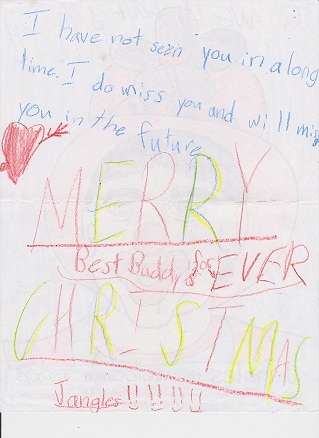 I have not seen you in a long
time. I do miss you and will miss
you in the future
MERRY
Best Buddys for EVER
CHRISTMAS
Jangles!!!!!